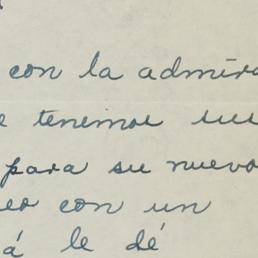 con la admira
e tenemos sus
para su nuevo
eo con un
á le dé